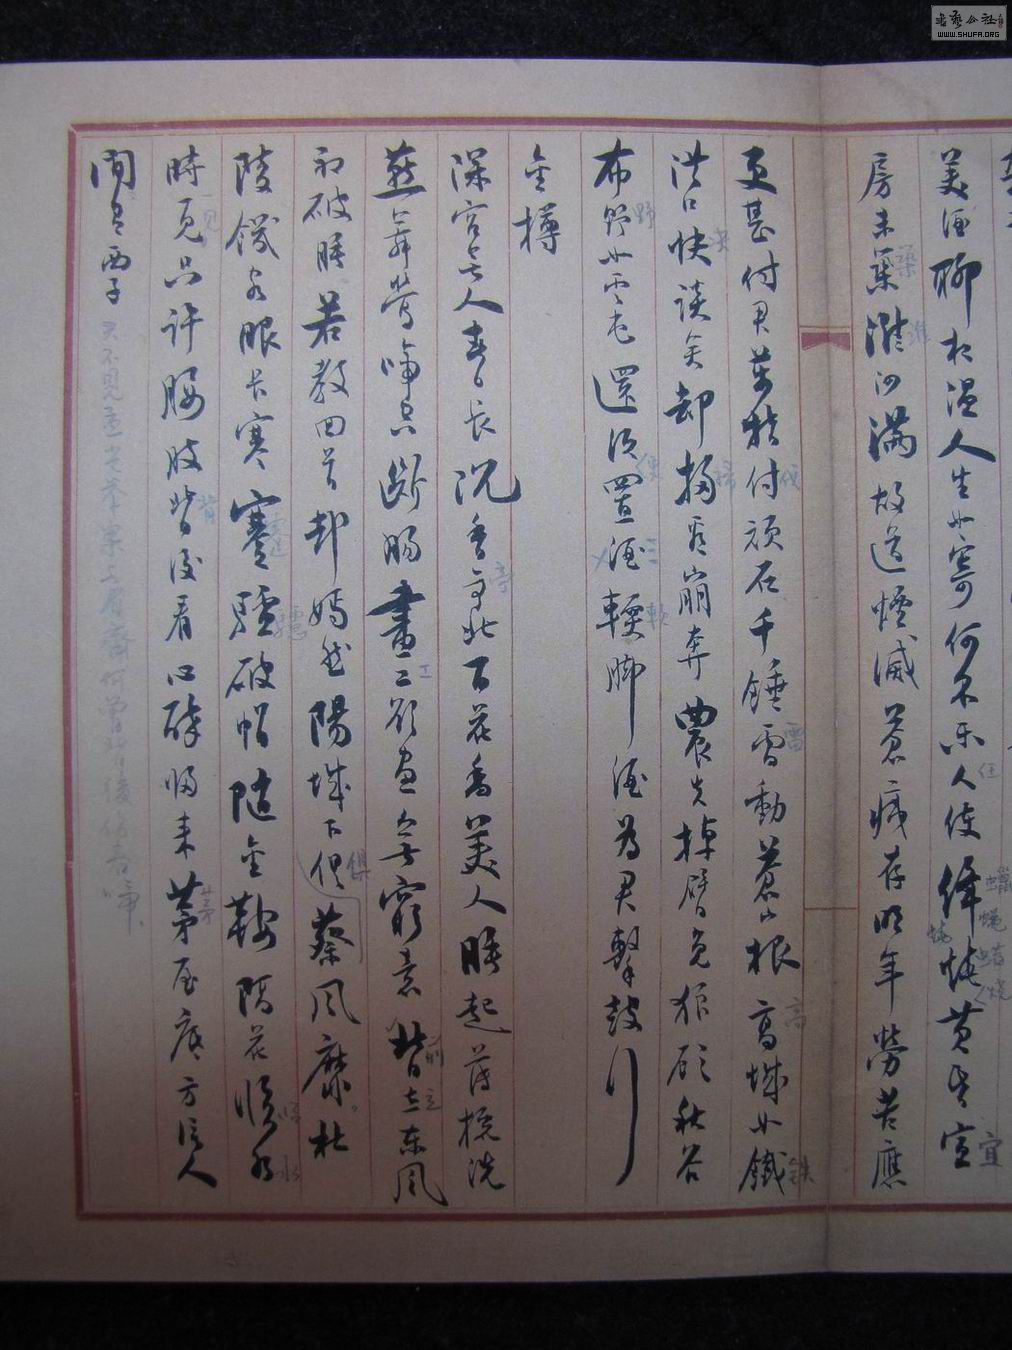 美酒聊相温人生如寄何不乐人使絳燒黄昏宣
房未築淮泗滿故道堙滅蒼痍存明年勞苦應
更甚付君萬指付頑石千錘雷動蒼山根高城如鐵
洪口快談笑却掃看崩奔農夫掉臂免狼顧秋谷
布野如雲屯還須置酒輭脚酒為君擊鼓行
金樽
深宫無人春日長沉香亭北百花香美人睡起薄梳洗
燕舞鶯啼空斷腸畫工欲畫無窮意背立東風
初破睡若教回首却嫣然陽城下俱蔡風靡杜
陵饑客眼長寒蹇驢破帽隨金鞍隔花臨水
時見只許腰肢背後看心醉歸来茅屋底方信人
間有西子君不見孟光舉案与眉齊何曾背後傷春啼
書藝公社
WWW.SHUFA.ORG